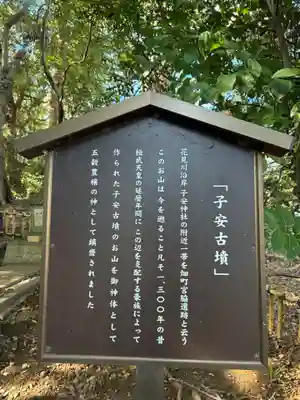 「子安古墳」
花見川沿岸子安神社の附近一帯を畑町宮脇遺跡と云う
このお山は今を遡ること凡そ一、三〇〇年の昔
桓武天皇の延暦年間に この辺を支配する豪族によって
作られた子安古墳のお山を御神体として
五穀豊穣の神として鎮齋されました